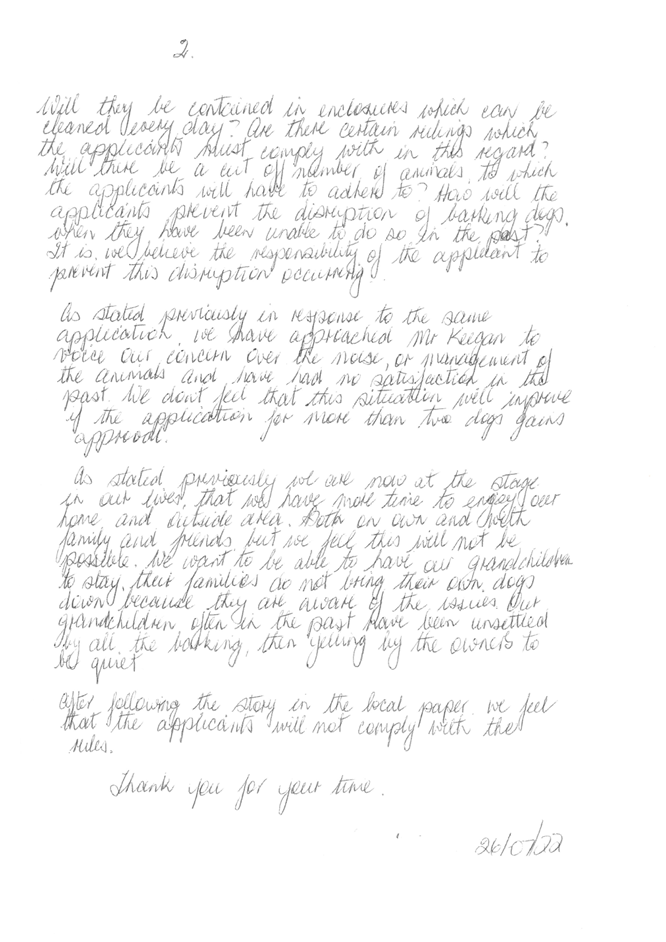 2.
Will they be contained in enclosures which can be
cleaned every day? Are there certain rulings which
the applicants must comply with in this regard?
Will there be a cut off number of animals, to which
the applicants will have to adhere to? How will the
applicants prevent the disruption of barking dogs,
when they have been unable to do so in the past?
It is, we believe the responsibility of the applicant to
prevent this disruption occurring.
As stated previously in response to the same
application, we have approached Mr Keegan to
voice our concern over the noise, or management of
the animals and, have had no satisfaction in the
past. We dont feel that this situation will improve
if the application for more than two dogs gains
approval.
As stated previously we are now at the stage
in our lives, that we have more time to enjoy our
home and outside area. Both on own and with
family and friends but we feel this will not be
possible. We want to be able to have our grandchildren
to stay, their families do not bring their own dogs
down because they are aware of the issues. Our
grandchildren often in the past have been unsettled
by all the barking, then yelling by the owners to
be quiet
After following the story in the local paper, we feel
that the applicants will not comply with the
rules.
Thank you for your time.
26/07/22